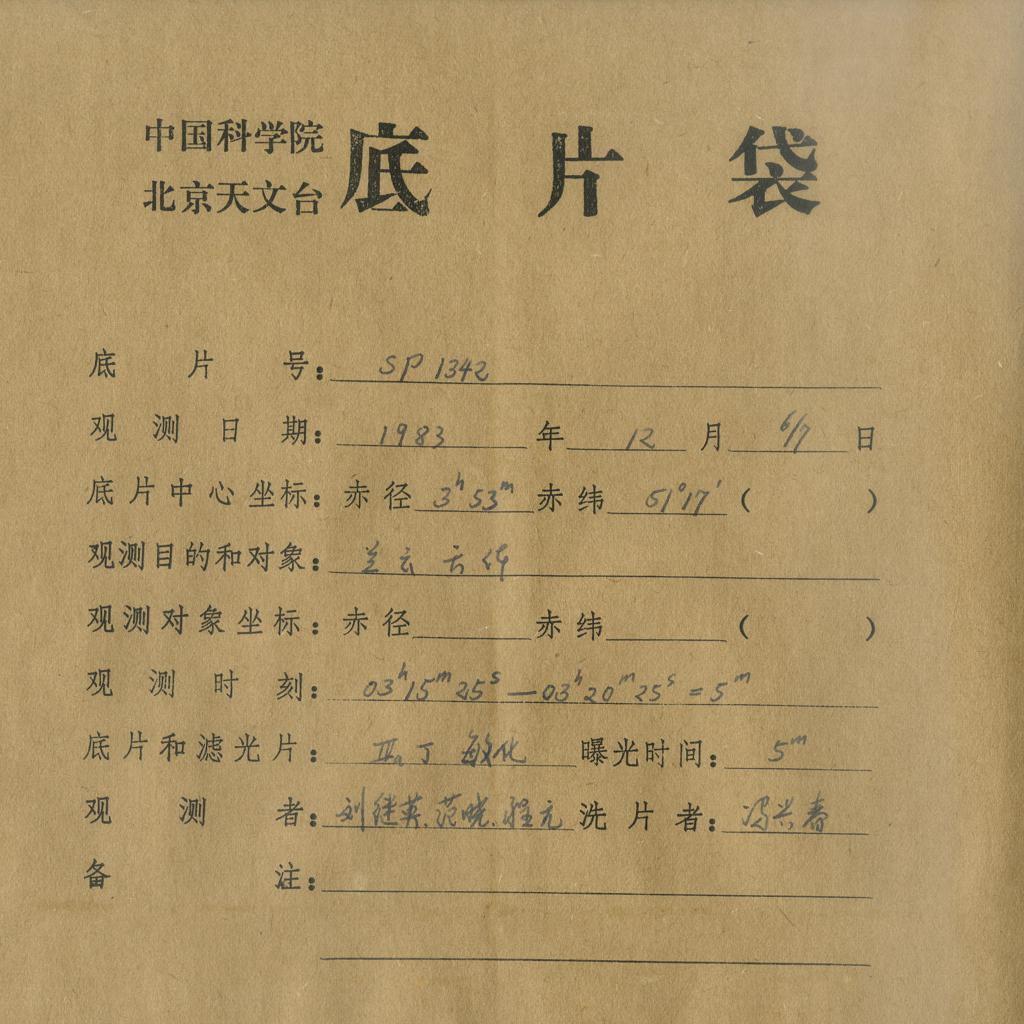 中国科学院
北京天文台
底片袋
底片号: SP 1342
观测日期: 1983年12月6/7日
底片中心坐标: 赤径 3ʰ53ᵐ 赤纬 51°17′ ( )
观测目的和对象:
观测对象坐标: 赤径 赤纬 ( )
观测时刻: 03ʰ15ᵐ25ˢ—03ʰ20ᵐ25ˢ=5ᵐ
底片和滤光片: Ⅱₐ 敏化 曝光时间: 5ᵐ
观测者: 刘继英、范晓、程元 洗片者: 冯兴春
备注: